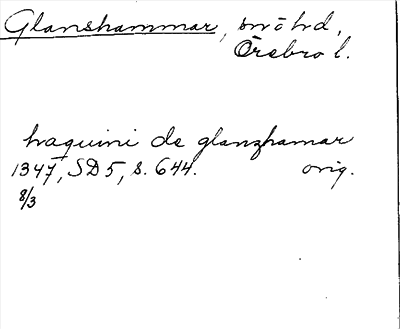 Glanshammar, snöhd,
Örebro l.
haquini de glanzhamar
1347, SD 5, s. 644. orig.
8/3